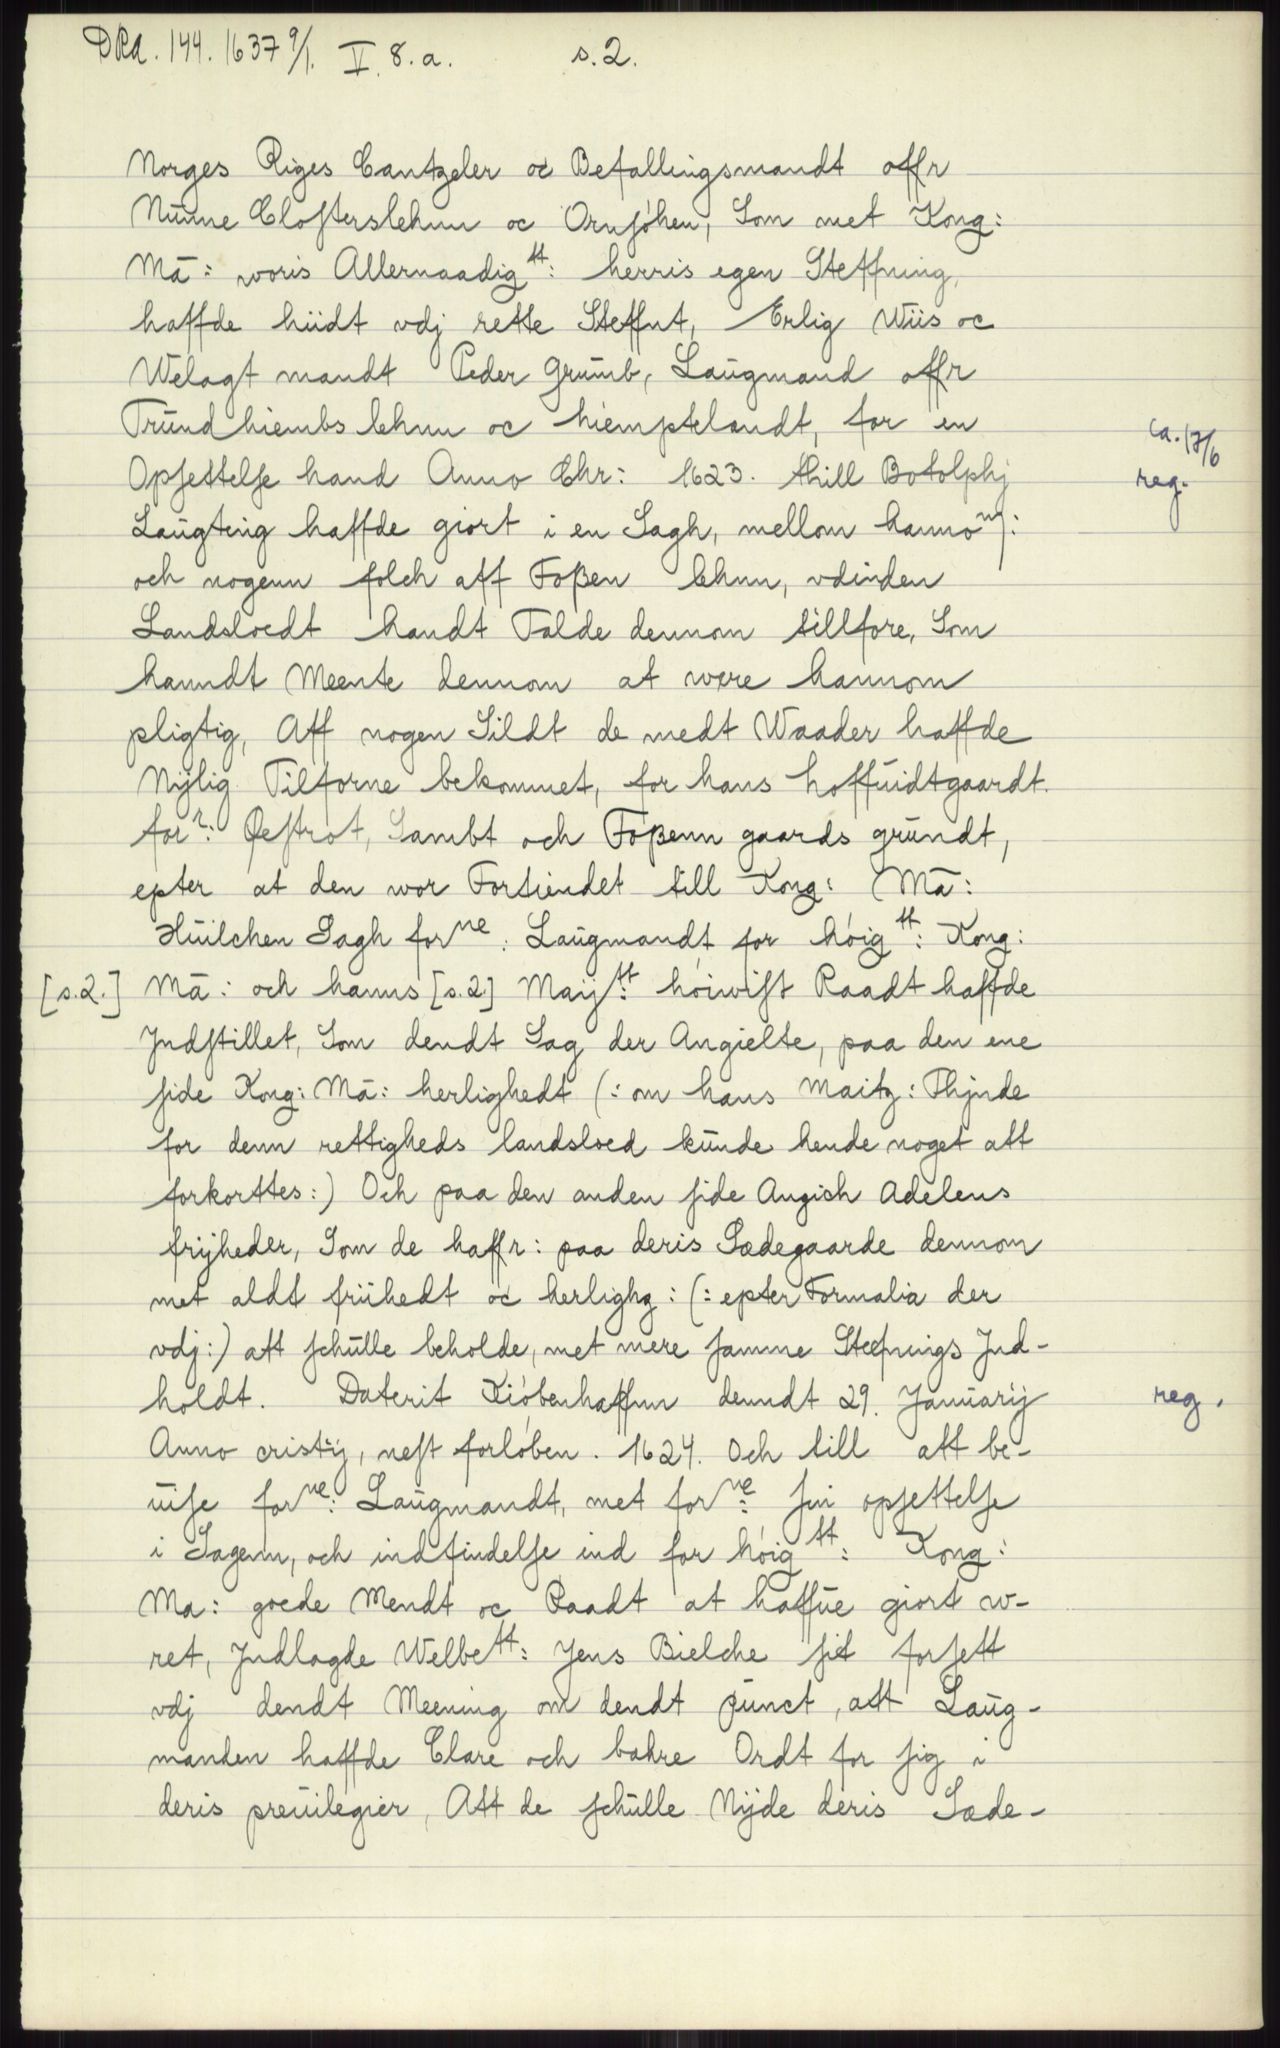 DRA. 144. 1637 9/1. V. 8. a. s. 2.
Norges Riges Cantzeler oc Befallingsmandt offr
Nunne Closterslehnn oc Ørnsöhen, Som met Kong:
Mā: woris Allernaadigtt: herris egen Steffning,
haffde hiidt vdj rette Steffnt, Erlig Wiis oc
Welagt mandt Peder Grumb, Laugmand offr
Trundhiembs lehnn oc hiemptelandt, for en
Opsettelse hand Anno Chr: 1623. thill Botolphj
ca. 17/6
reg.
Laugting haffde giort i en Sagh, mellom hannom:
och nogenn folch aff Foßen lehnn, vdinden
Landsloedt handt Talde dennom tillfore, Som
hanndt Meente dennom at were hannom
pligtig, Aff nogen Sildt de medt Waader haffde
Nylig Tilforne bekommet, for hans hoffuidtgaardt.
forn: Østrot, Sambt och Foßenn gaards grundt,
epter at den wor Fortiendet till Kong: Mā:
Huilchen Sagh forne: Laugmandt for höigtt: Kong:
[s.2.] Mā: och hanns [s.2.] Maijtt: höiwist Raadt haffde
Jndstillet, Som dendt Sag der Angielte, paa den ene
side Kong: Mā: herlighedt (: om hans Maitz: Thjnde
for denn rettigheds landsloed kunde hende noget att
forkorttes:) Och paa den anden side Angich Adelens
frijheder, Som de haffr: paa deris Sædegaarde dennom
met aldt friihedt oc herlighz: (: epter Formalia der
vdj:) att schulle beholde, met mere samme Steffnings Jnd-
holdt. Daterit Kiöbenhaffnn denndt 29. Januarij
reg.
Anno cristij, nest forlöben. 1624. Och till att be-
uise forne: Laugmandt, met forne: sin opsettelse
i Sagenn, och indfindelse ind for höigtt: Kong:
Ma: goede Mendt oc Raadt at haffue giort w-
ret, Jndlagde Welbetr: Jens Bielche sit forsett
vdj dendt Meening om dendt punct, att Laug-
manden haffde Clare och bahre Ordt for sig i
deris preuilegier, Att de schulle Nyde deris Sæde-